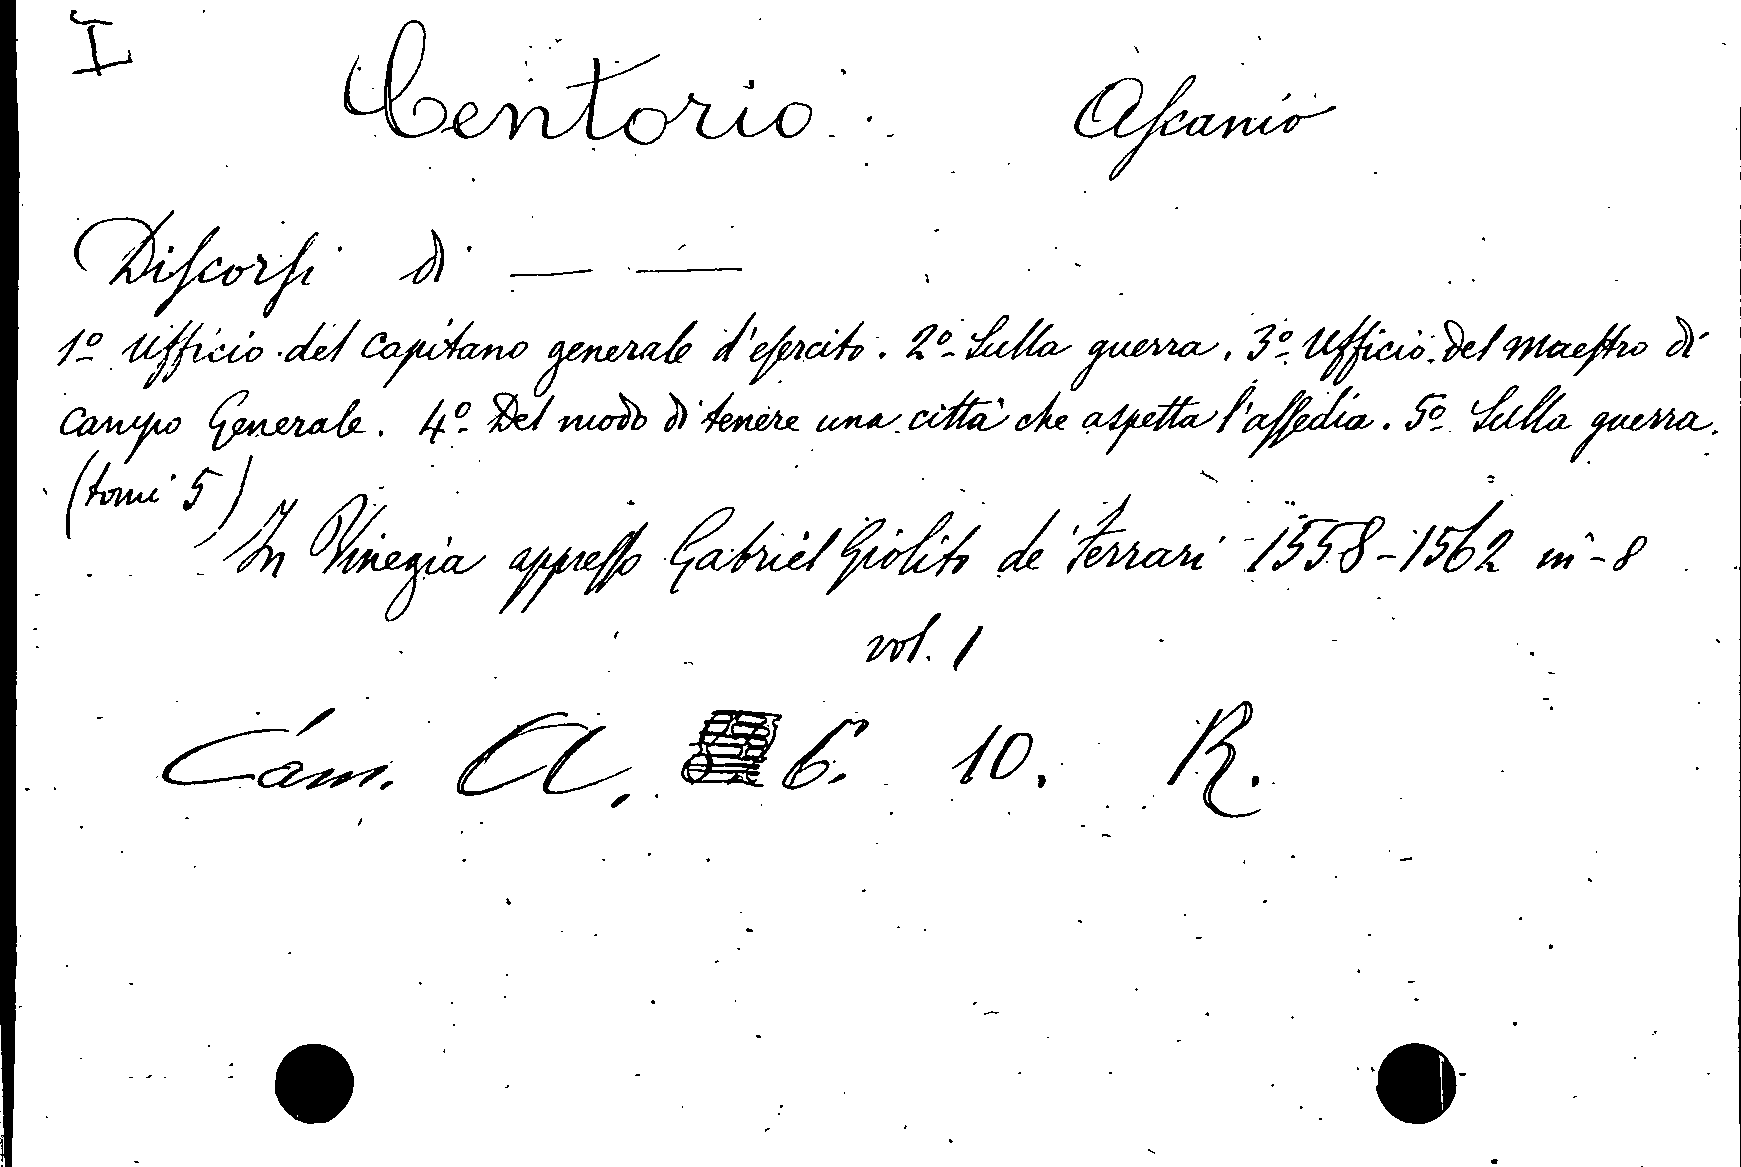 I
Centorio Ascanio
Discorsi di — —
1º Ufficio del capitano generale d'esercito. 2º Sulla guerra. 3º Ufficio del maestro di
campo Generale. 4º Del modo di tenere una città che aspetta l'assedio. 5º Sulla guerra.
(tomi 5)
In Vinegia appresso Gabriel Giolito de' Ferrari 1558-1562 in-8
vol. 1
Cam. A. 6. 10. R.